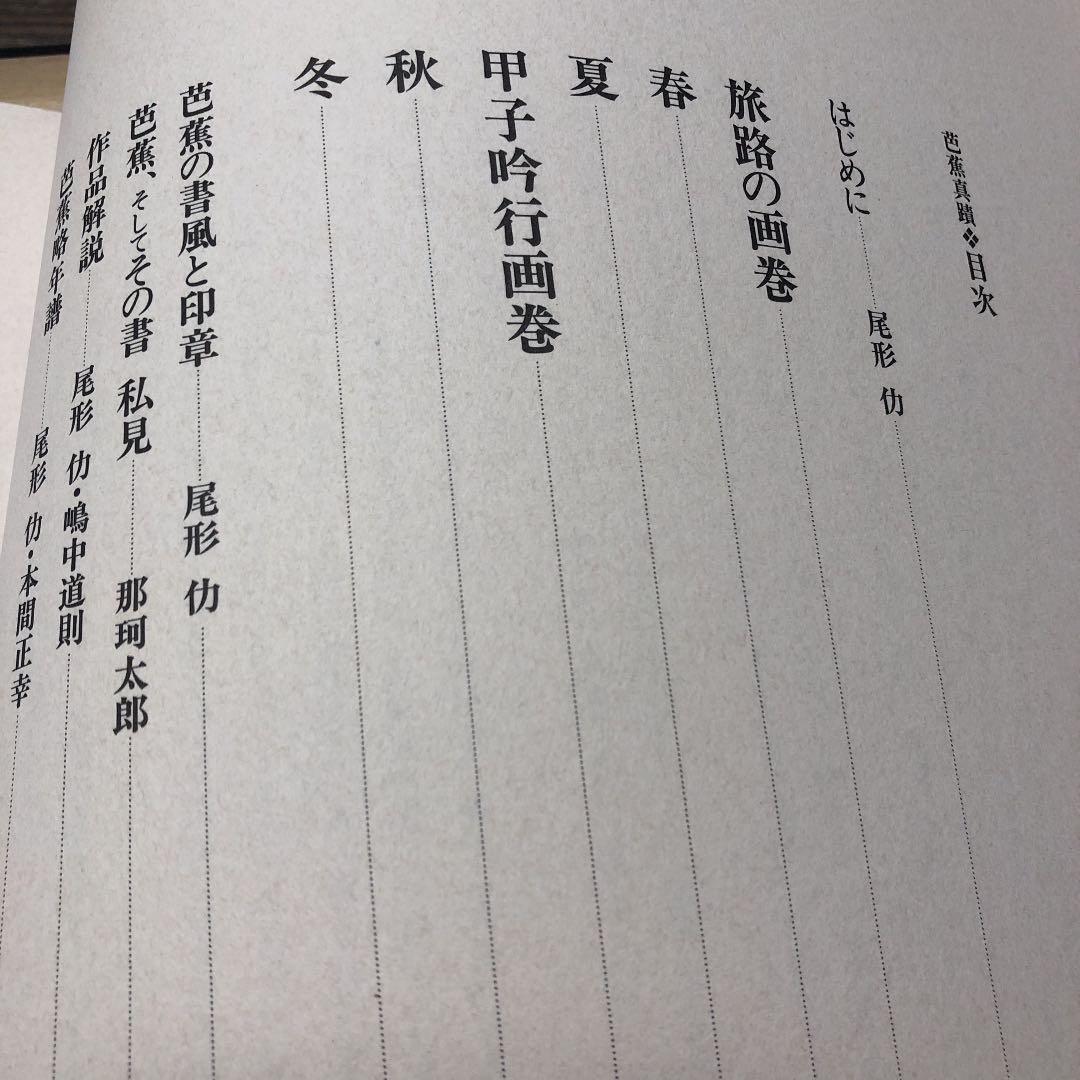 芭蕉真蹟❖目次
はじめに 尾形 仂
旅路の画巻
春
夏
甲子吟行画巻
秋
冬
芭蕉の書風と印章 尾形 仂
芭蕉、そしてその書 私見 那珂太郎
作品解説 尾形 仂・嶋中道則
芭蕉略年譜 尾形 仂・本間正幸